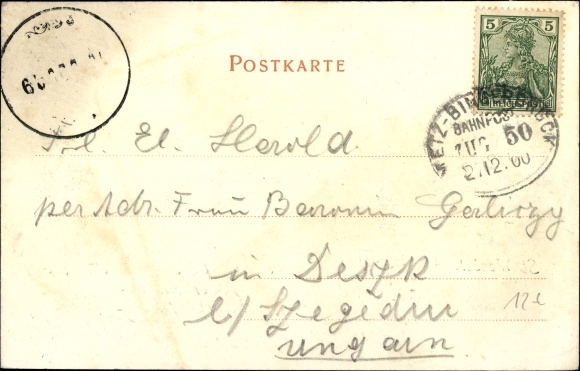 POSTKARTE
5 5
METZ-BINGERBRÜCK
BAHNPOST
ZUG 50
2.12.00
Frl. El. Herold
per Adr. Frau Baronin Gerliczy
in Deszk
b/ Szegedin
Ungarn
12 E